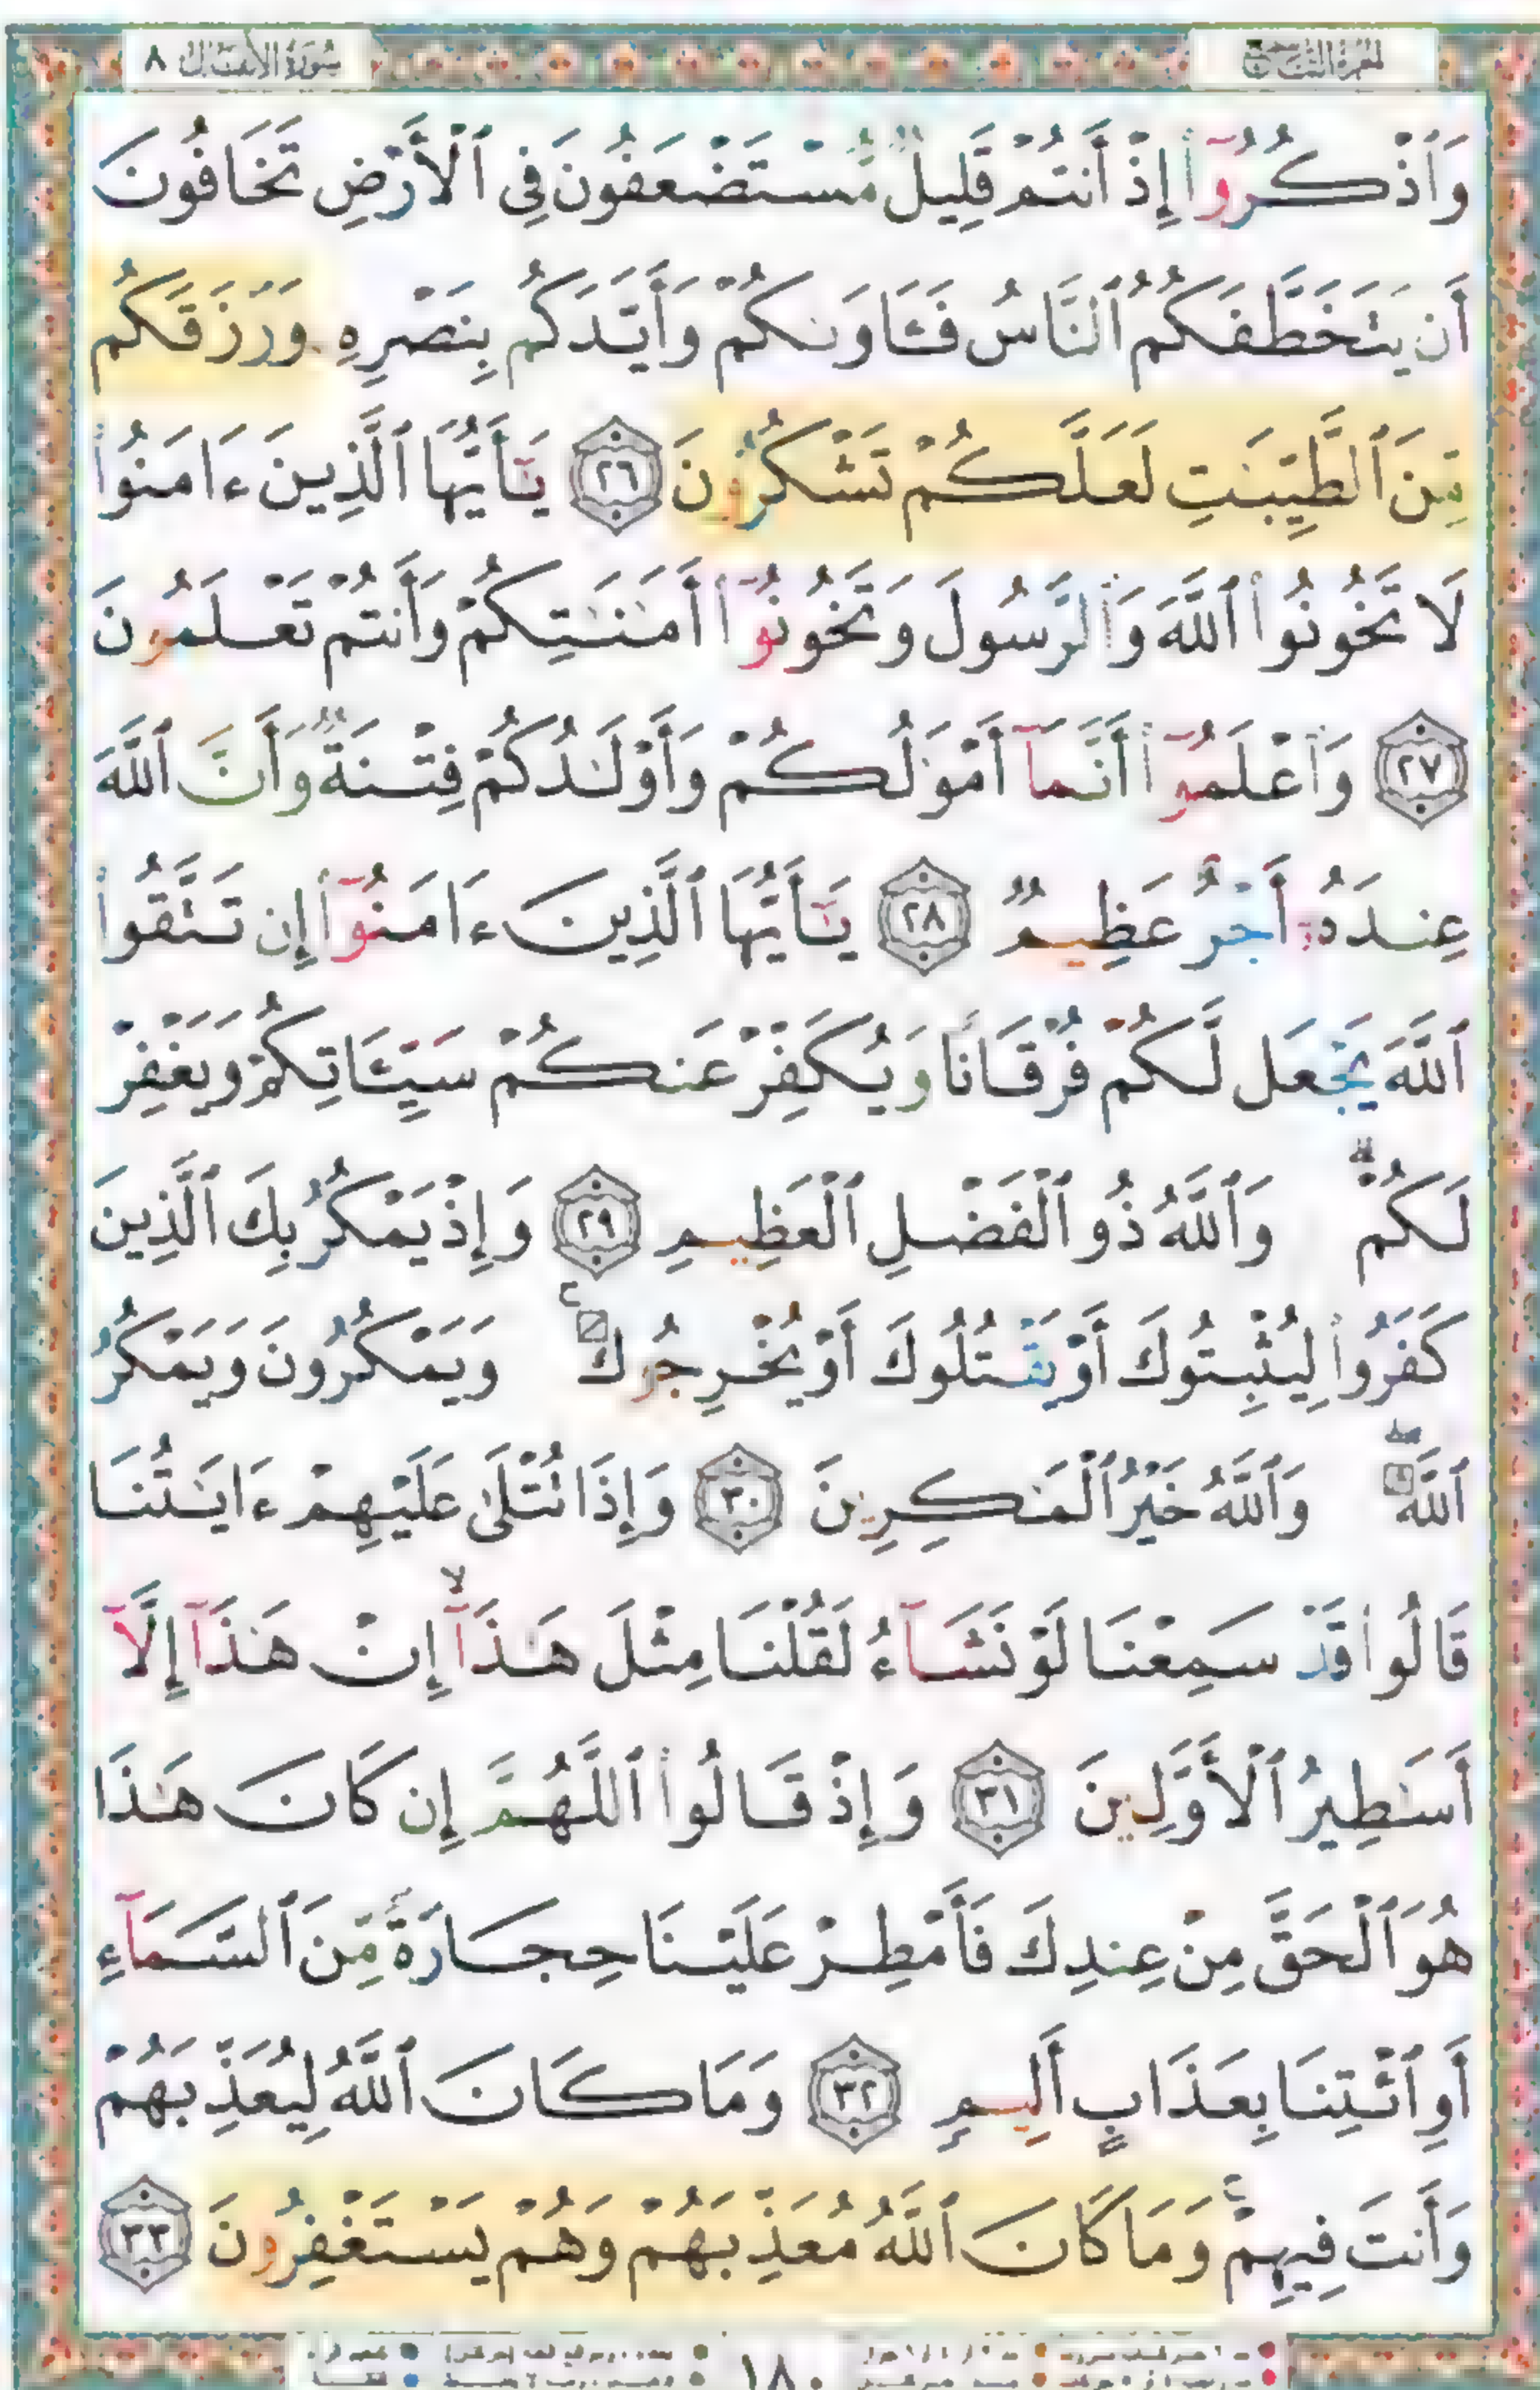 سُورَةُ الأَنفَال ٨
الجزء التاسع
وَٱذْكُرُوٓا۟ إِذْ أَنتُمْ قَلِيلٌ مُّسْتَضْعَفُونَ فِى ٱلْأَرْضِ تَخَافُونَ
أَن يَتَخَطَّفَكُمُ ٱلنَّاسُ فَـَٔاوَىٰكُمْ وَأَيَّدَكُم بِنَصْرِهِۦ وَرَزَقَكُم
مِّنَ ٱلطَّيِّبَـٰتِ لَعَلَّكُمْ تَشْكُرُونَ ٢٦ يَـٰٓأَيُّهَا ٱلَّذِينَ ءَامَنُوا۟
لَا تَخُونُوا۟ ٱللَّهَ وَٱلرَّسُولَ وَتَخُونُوٓا۟ أَمَـٰنَـٰتِكُمْ وَأَنتُمْ تَعْلَمُونَ
٢٧ وَٱعْلَمُوٓا۟ أَنَّمَآ أَمْوَٰلُكُمْ وَأَوْلَـٰدُكُمْ فِتْنَةٌ وَأَنَّ ٱللَّهَ
عِندَهُۥٓ أَجْرٌ عَظِيمٌ ٢٨ يَـٰٓأَيُّهَا ٱلَّذِينَ ءَامَنُوٓا۟ إِن تَتَّقُوا۟
ٱللَّهَ يَجْعَل لَّكُمْ فُرْقَانًا وَيُكَفِّرْ عَنكُمْ سَيِّـَٔاتِكُمْ وَيَغْفِرْ
لَكُمْ ۗ وَٱللَّهُ ذُو ٱلْفَضْلِ ٱلْعَظِيمِ ٢٩ وَإِذْ يَمْكُرُ بِكَ ٱلَّذِينَ
كَفَرُوا۟ لِيُثْبِتُوكَ أَوْ يَقْتُلُوكَ أَوْ يُخْرِجُوكَ ۚ وَيَمْكُرُونَ وَيَمْكُرُ
ٱللَّهُ ۖ وَٱللَّهُ خَيْرُ ٱلْمَـٰكِرِينَ ٣٠ وَإِذَا تُتْلَىٰ عَلَيْهِمْ ءَايَـٰتُنَا
قَالُوا۟ قَدْ سَمِعْنَا لَوْ نَشَآءُ لَقُلْنَا مِثْلَ هَـٰذَآ ۙ إِنْ هَـٰذَآ إِلَّآ
أَسَـٰطِيرُ ٱلْأَوَّلِينَ ٣١ وَإِذْ قَالُوا۟ ٱللَّهُمَّ إِن كَانَ هَـٰذَا
هُوَ ٱلْحَقَّ مِنْ عِندِكَ فَأَمْطِرْ عَلَيْنَا حِجَارَةً مِّنَ ٱلسَّمَآءِ
أَوِ ٱئْتِنَا بِعَذَابٍ أَلِيمٍ ٣٢ وَمَا كَانَ ٱللَّهُ لِيُعَذِّبَهُمْ
وَأَنتَ فِيهِمْ ۚ وَمَا كَانَ ٱللَّهُ مُعَذِّبَهُمْ وَهُمْ يَسْتَغْفِرُونَ ٣٣
١٨٠